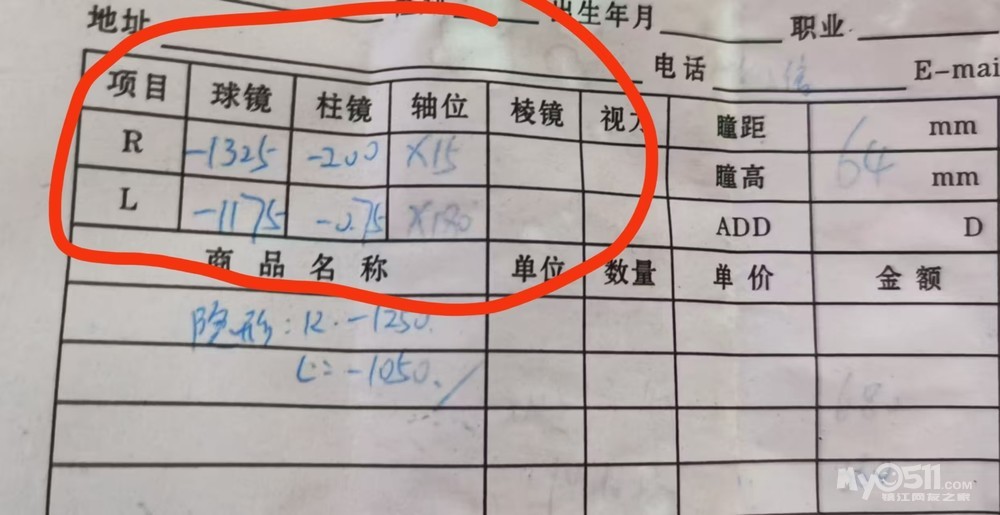 地址 出生年月 职业
电话 E-mai
项目 球镜 柱镜 轴位 棱镜 视力 瞳距 64 mm
R -1325 -200 X15 瞳高 mm
L -1175 -0.75 X180 ADD D
商品名称 单位 数量 单价 金额
隐形: R. -1250.
L: -1050.
My0511.COM
镇江网友之家